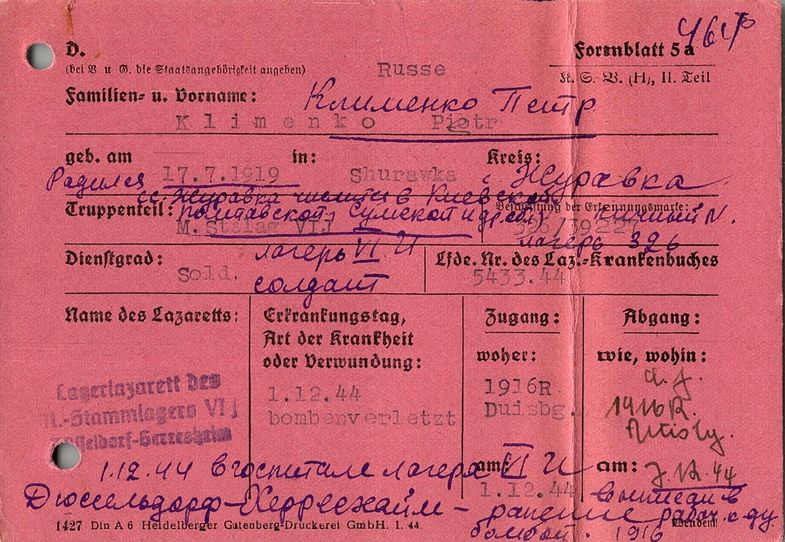 D. Formblatt 5a
(bei V u G. die Staatsangehörigkeit angeben) Russe K. S. V. (H), II. Teil
Familien- u. Vorname: Клименко Петр
Klimenko Piotr
geb. am 17.7.1919 in: Shurawka Kreis: Журавка
Родился Журавка
Truppenteil: Полтавской Сумской der Erkennungsmarke: Личный N.
M. Stalag VI J 326/39227
лагерь VI И лагерь 326
Dienstgrad: Sold. Lfde. Nr. des Laz.-Krankenbuches
солдат 5433.44
Name des Lazaretts: Erkrankungstag, Zugang: Abgang:
Art der Krankheit
oder Verwundung: woher: wie, wohin:
Lagerlazarett des 1.12.44 1916R. 1916R.
M.-Stammlagers VI J bombenverletzt Duisbg.
Düsseldorf-Gerresheim
1.12.44 в госпитале лагеря VI И am: am:
1.12.44
Дюссельдорф-Херресхайм - ранение
1427 Din A 6 Heidelberger Gutenberg-Druckerei GmbH. I. 44. бомбой. 1916 Wenden!